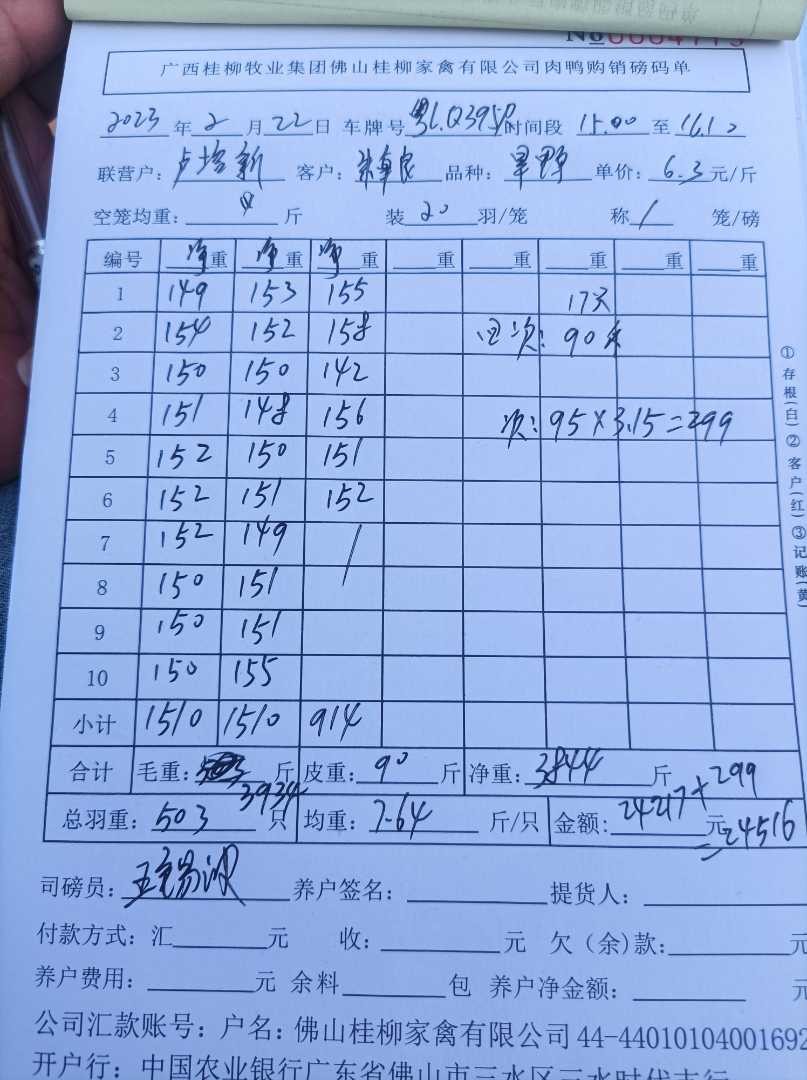 No 0004113
广西桂柳牧业集团佛山桂柳家禽有限公司肉鸭购销磅码单
2023年2月22日 车牌号粤L.Q395 时间段 15.00至16.10
联营户:卢培新 客户: 品种:旱野 单价:6.3元/斤
空笼均重: 斤 装20羽/笼 称1笼/磅
编号 净重 净重 净重 重 重 重 重 重
1 149 153 155 17天
2 154 152 158 四次:90斤
3 150 150 142
4 151 148 156 次:95×3.15=299
5 152 150 151
6 152 151 152
7 152 149 /
8 150 151
9 150 151
10 150 155
小计 1510 1510 914
合计 毛重: 3934斤 皮重:90斤 净重:3844斤
总羽重:503只 均重:7.64斤/只 金额:24217元+299=24516
司磅员: 养户签名: 提货人:
付款方式:汇 元 收: 元 欠(余)款: 元
养户费用: 元 余料 包 养户净金额: 元
公司汇款账号:户名:佛山桂柳家禽有限公司44-44010104001692
开户行:中国农业银行广东省佛山市三水区三水时代支行
①存根(白)②客户(红)③记账(黄)